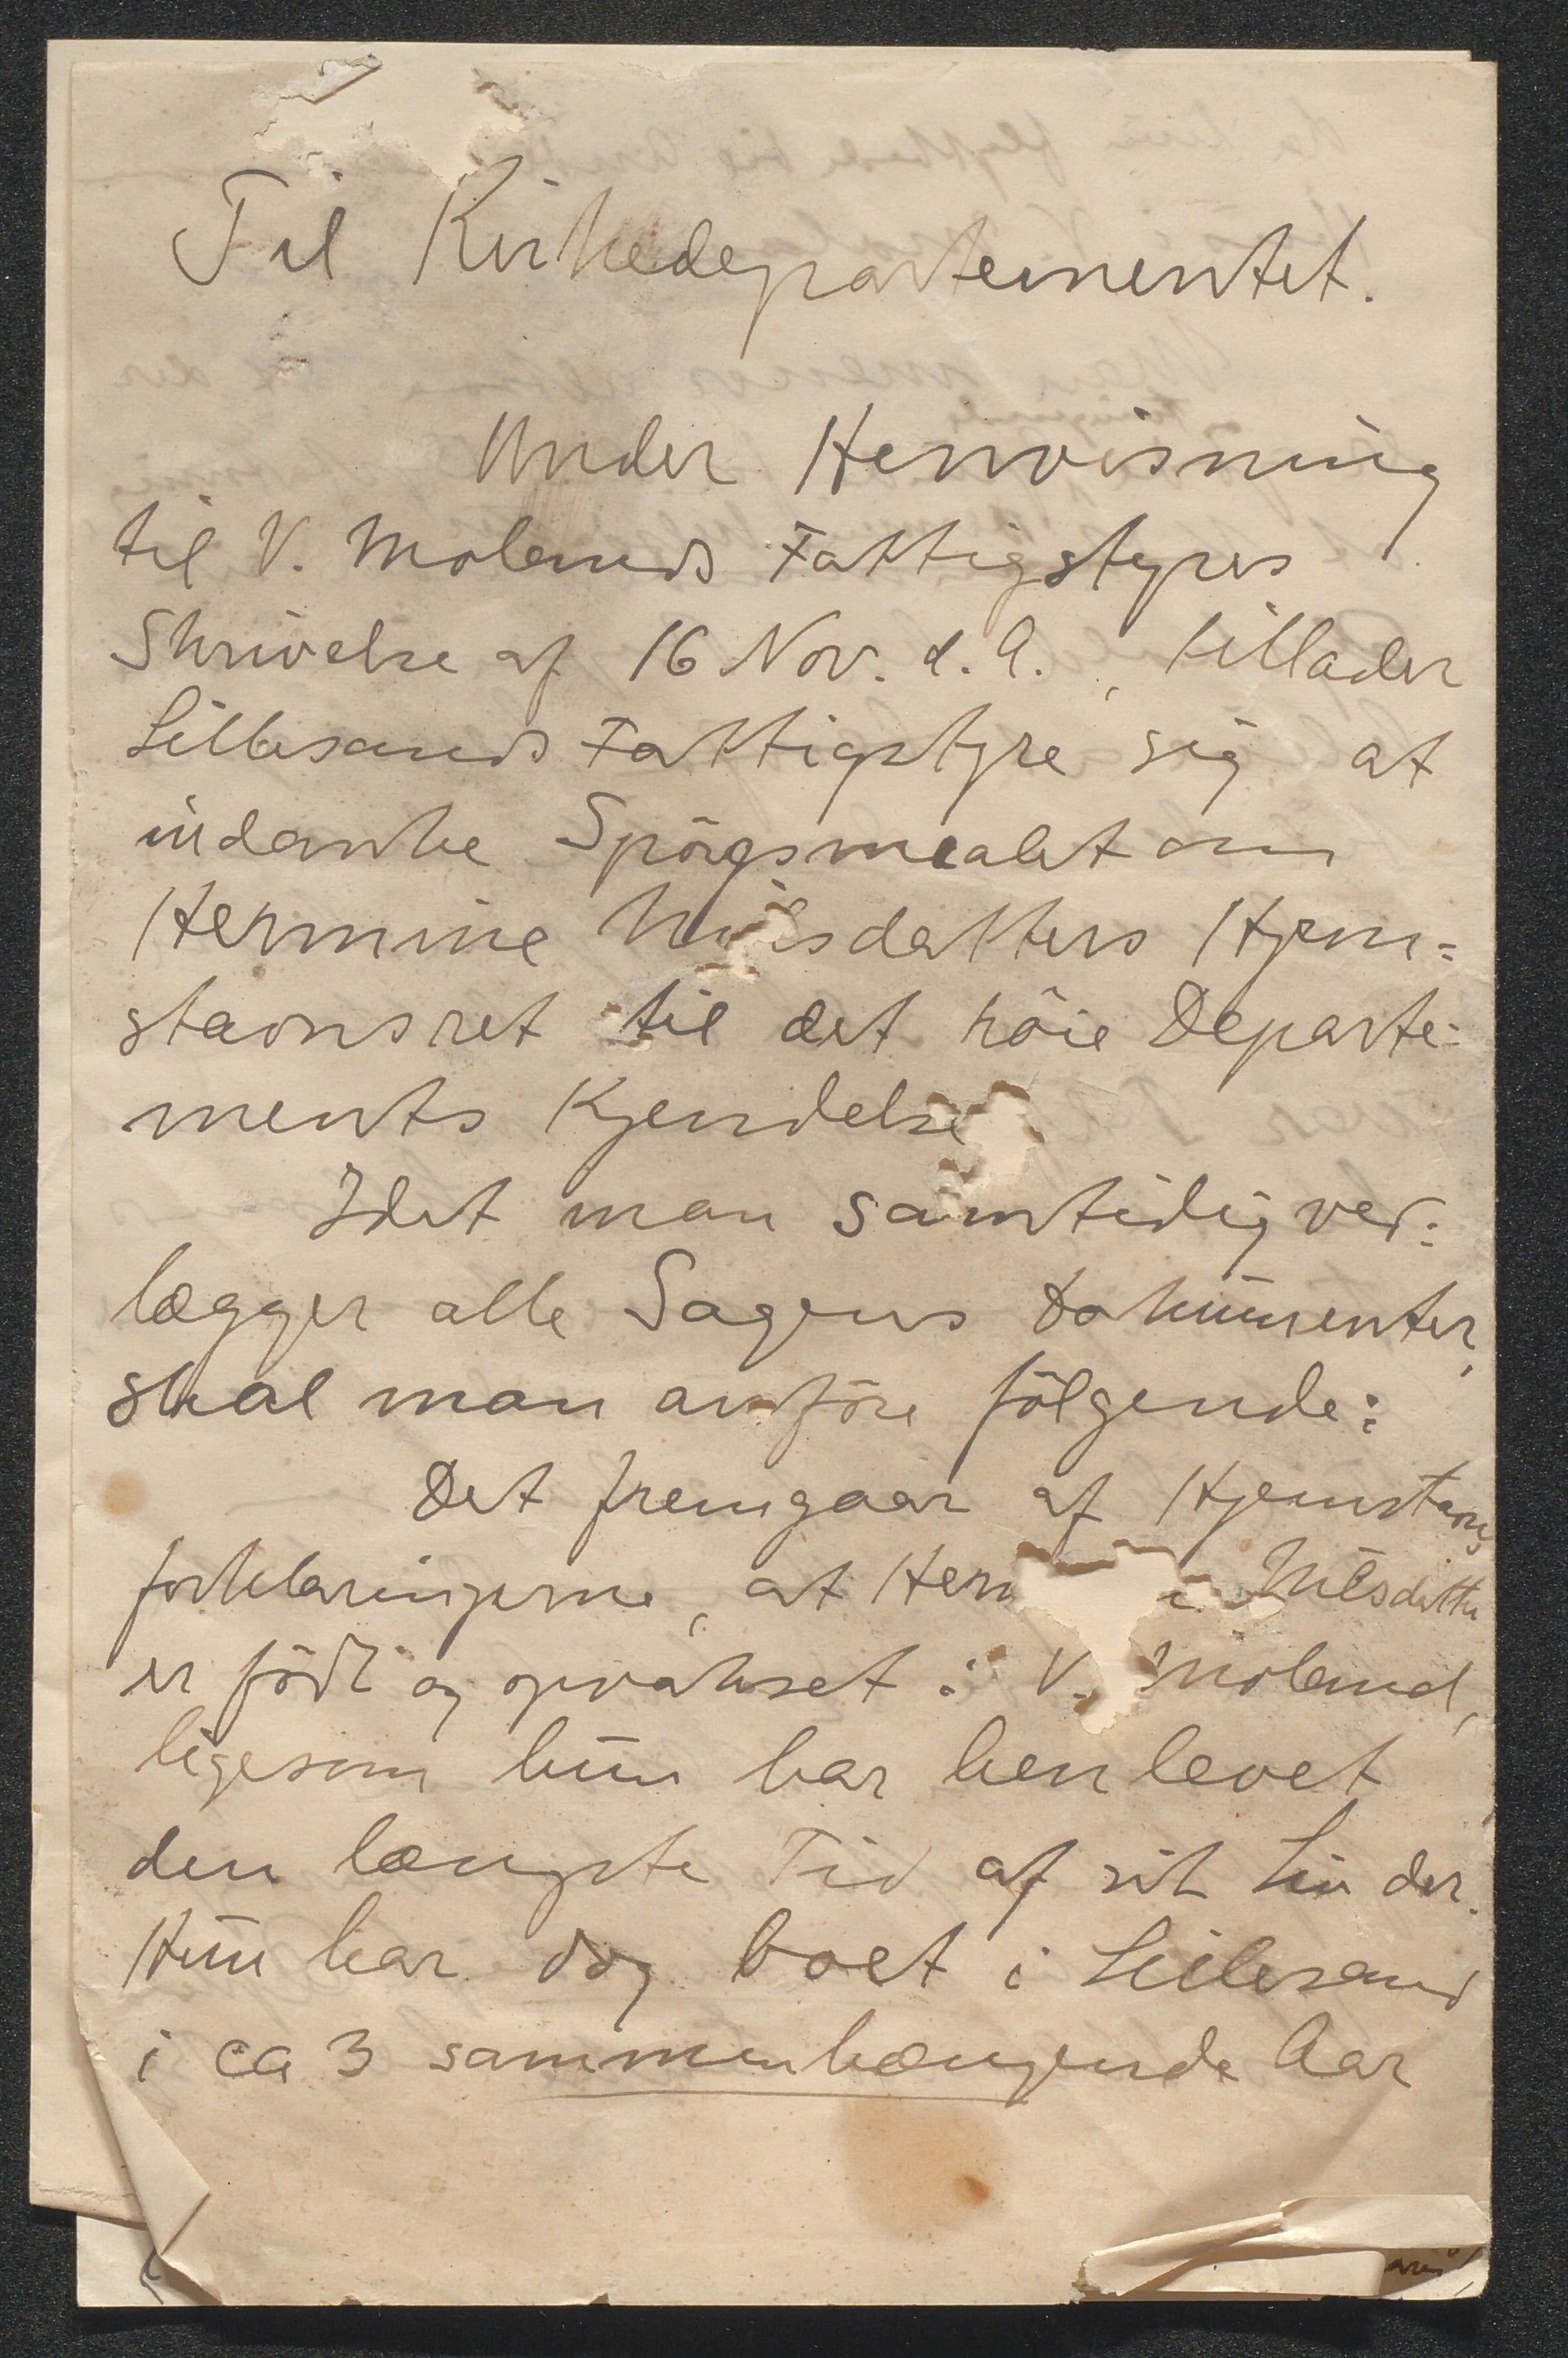 Til Kirkedepartementet.
Under Henvisning
til V. Molands Fattigstyres
Skrivelse af 16 Nov. d. A., tillader
Lillesands Fattigstyre sig at
indanke Spörgsmaalet om
Hermine Nilsdatters Hjem=
stavnsret til det höie Departe=
ments Kjendelse
Idet man samtidig ved=
lægger alle Sagens Dokumenter,
skal man anföre fölgende:
Det fremgaar af Hjemstavns
forklaringerne, at Herm Nilsdatter
er födt og opvokset i V. Moland,
ligesom hun har henlevet
den længste Tid af sit Liv der.
Hun har dog boet i Lillesand
i ca 3 sammenhængende Aar